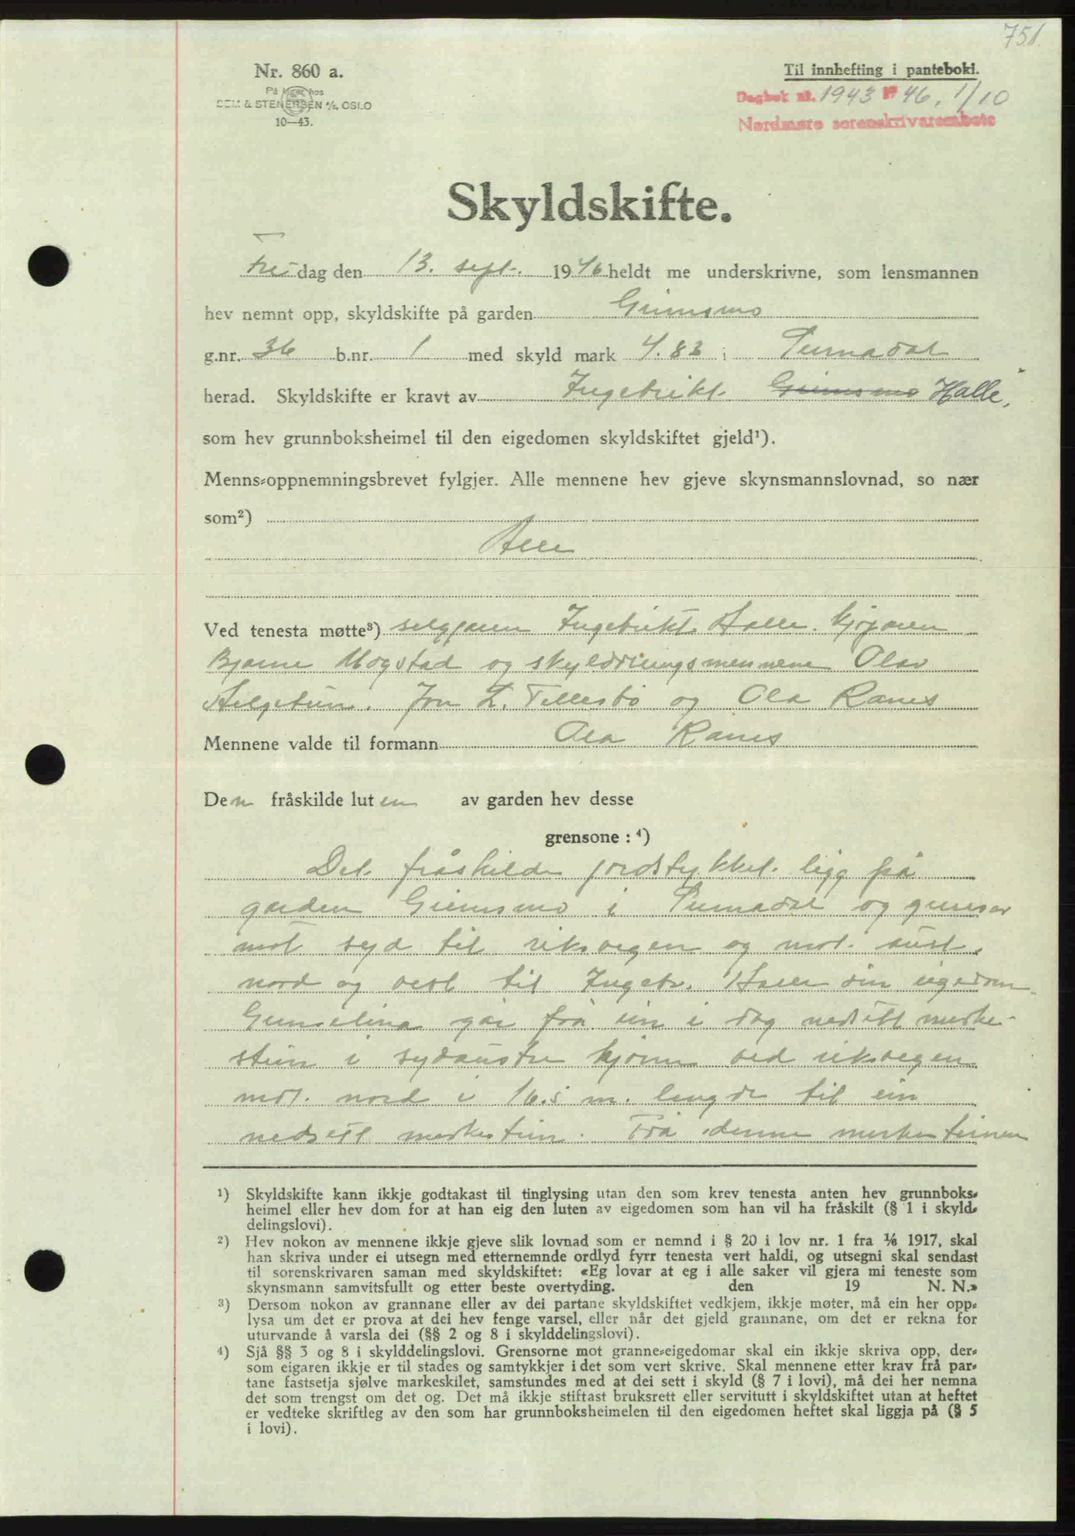 751.
Nr. 860 a.
Til innhefting i panteboki.
På lager hos
SEM & STENERSEN A/S, OSLO
10—43.
Dagbok nr. 1943 19 46, 1/10
Nordmøre sorenskrivarembete
Skyldskifte.
Fre dag den 13. sept. 1946 heldt me underskrivne, som lensmannen
hev nemnt opp, skyldskifte på garden Grimsmo
g.nr. 36 b.nr. 1 med skyld mark 4.83 i Surnadal
herad. Skyldskifte er kravt av Ingebrikt Grimsmo Halle,
som hev grunnboksheimel til den eigedomen skyldskiftet gjeld¹).
Menns-oppnemningsbrevet fylgjer. Alle mennene hev gjeve skynsmannslovnad, so nær
som²)
Alle
Ved tenesta møtte³) seljaren Ingebrikt Halle. kjøparen
Bjarne Mogstad og skyldelingsmennene Olav
Helgetun. Jon L. Tellesbø og Ola Ranes
Mennene valde til formann Ola Ranes
Den fråskilde luten av garden hev desse
grensone : ⁴)
Det fråskilde jordstykket ligg på
garden Grimsmo i Surnadal og grensar
mot syd til riksvegen og mot aust,
nord og vest til Ingebr. Halle sin eigedom.
Grenselina går frå ein i dag nedsett merke-
stein i sydaustre hjørne ved riksvegen
mot nord i 16.5 m. lengde til ein
nedsett merkestein. Frå denne merkesteinen
¹) Skyldskifte kann ikkje godtakast til tinglysing utan den som krev tenesta anten hev grunnboks-
heimel eller hev dom for at han eig den luten av eigedomen som han vil ha fråskilt (§ 1 i skyld-
delingslovi).
²) Hev nokon av mennene ikkje gjeve slik lovnad som er nemnd i § 20 i lov nr. 1 fra 1/6 1917, skal
han skriva under ei utsegn med etternemnde ordlyd fyrr tenesta vert haldi, og utsegni skal sendast
til sorenskrivaren saman med skyldskiftet: «Eg lovar at eg i alle saker vil gjera mi teneste som
skynsmann samvitsfullt og etter beste overtyding. den 19 N. N.»
³) Dersom nokon av grannane eller av dei partane skyldskiftet vedkjem, ikkje møter, må ein her opp-
lysa um det er prova at dei hev fenge varsel, eller når det gjeld grannane, om det er rekna for
uturvande å varsla dei (§§ 2 og 8 i skylddelingslovi).
⁴) Sjå §§ 3 og 8 i skylddelingslovi. Grensorne mot granne-eigedomar skal ein ikkje skriva opp, der-
som eigaren ikkje er til stades og samtykkjer i det som vert skrive. Skal mennene etter krav frå par-
tane fastsetja sjølve markeskilet, samstundes med at dei sett i skyld (§ 7 i lovi), må dei her nemna
det som trengst om det og. Det må ikkje stiftast bruksrett eller servitutt i skyldskiftet utan at heftet
er vedteke skriftleg av den som har grunnboksheimelen til den eigedomen heftet skal liggja på (§ 5
i lovi).